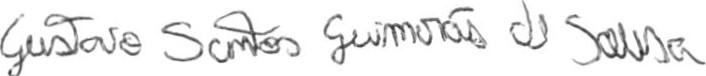 Gustavo Santos Guimarães de Sousa